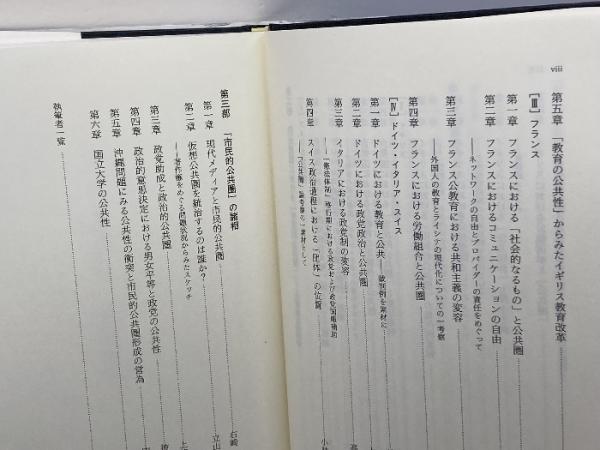 viii
第五章 「教育の公共性」からみたイギリス教育改革
[Ⅲ] フランス
第一章 フランスにおける「社会的なるもの」と公共圏
第二章 フランスにおけるコミュニケーションの自由
――ネットワークの自由とプロバイダーの責任をめぐって
第三章 フランス公教育における共和主義の変容
――外国人の教育とライシテの現代化についての一考察
第四章 フランスにおける労働組合と公共圏
[Ⅳ] ドイツ・イタリア・スイス
第一章 ドイツにおける教育と公共――裁判例を素材に
第二章 ドイツにおける政党政治と公共圏
第三章 イタリアにおける政党制の変容
――「憲法体制」移行期における政党および政党国庫補助
第四章 スイス政治過程における「団体」の位置
第三部 「市民的公共圏」の諸相
石崎
第一章 現代メディアと市民的公共圏
立山
第二章 仮想公共圏を統治するのは誰か?
――著作権をめぐる問題状況からみたスケッチ
第三章 政党助成と政治的公共圏
第四章 政治的意思決定における男女平等と政党の公共性
第五章 沖縄問題にみる公共性の衝突と市民的公共圏形成の営為
第六章 国立大学の公共性
執筆者一覧